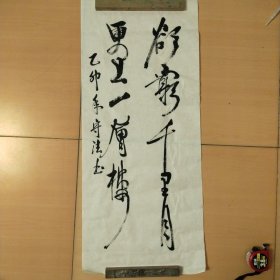 欲穷千里目
更上一层楼
乙卯年